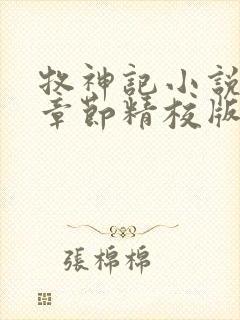 牧神記小說
章節精校版
張棉棉